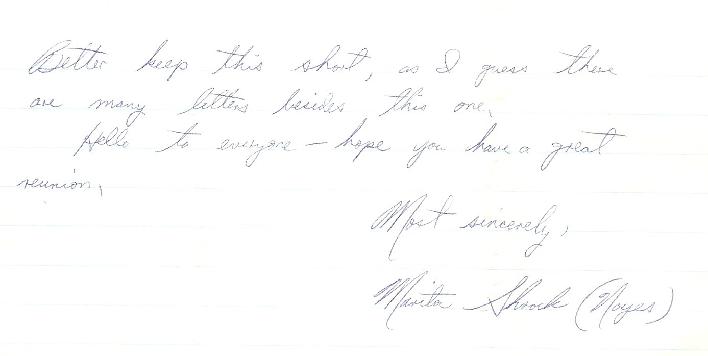 Better keep this short, as I guess there
are many letters besides this one.
Hello to everyone – hope you have a great
reunion.
Most sincerely,
Marita Shrock (Noyes)